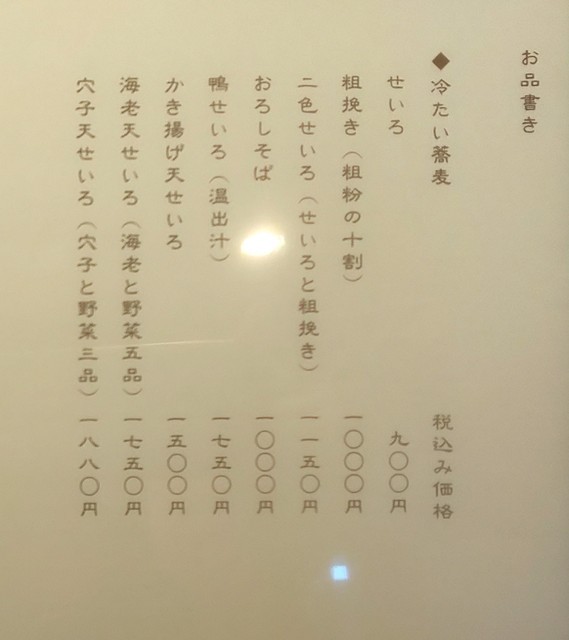 お品書き
◆冷たい蕎麦 税込み価格
せいろ 九〇〇円
粗挽き（粗粉の十割） 一〇〇〇円
二色せいろ（せいろと粗挽き） 一一五〇円
おろしそば 一〇〇〇円
鴨せいろ（温出汁） 一七五〇円
かき揚げ天せいろ 一五〇〇円
海老天せいろ（海老と野菜五品） 一七五〇円
穴子天せいろ（穴子と野菜三品） 一八八〇円